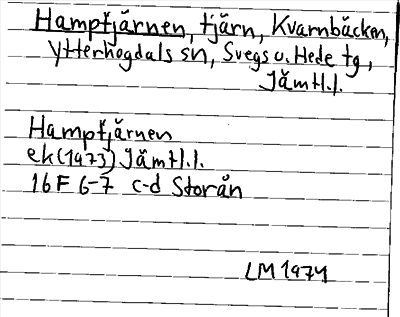 Hamptjärnen, tjärn, Kvarnbäcken,
Ytterhogdals sn, Svegs o. Hede tg,
Jämtl.l.
Hamptjärnen
ek (1973) Jämtl.l.
16 F 6-7 c-d Storån
LM 1974